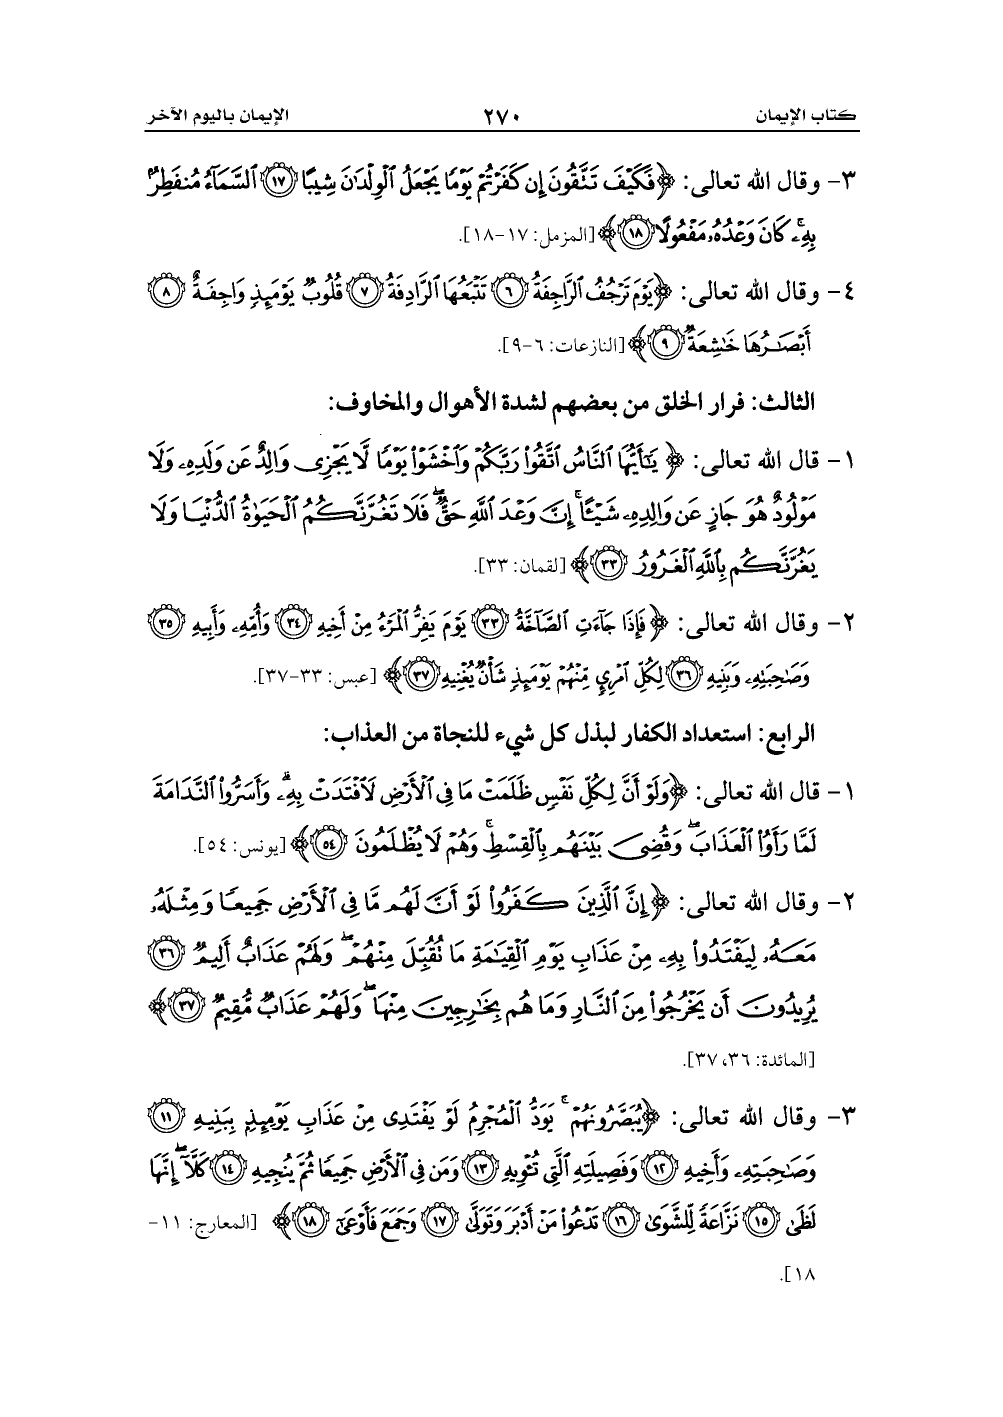 كتاب الإيمان ٢٧٠ الإيمان باليوم الآخر
٣- وقال الله تعالى: ﴿فَكَيْفَ تَتَّقُونَ إِن كَفَرْتُمْ يَوْمًا يَجْعَلُ ٱلْوِلْدَٰنَ شِيبًا ﴿١٧﴾ ٱلسَّمَآءُ مُنفَطِرٌۢ
بِهِۦۚ كَانَ وَعْدُهُۥ مَفْعُولًا ﴿١٨﴾﴾ [المزمل: ١٧-١٨].
٤- وقال الله تعالى: ﴿يَوْمَ تَرْجُفُ ٱلرَّاجِفَةُ ﴿٦﴾ تَتْبَعُهَا ٱلرَّادِفَةُ ﴿٧﴾ قُلُوبٌ يَوْمَئِذٍ وَاجِفَةٌ ﴿٨﴾
أَبْصَٰرُهَا خَٰشِعَةٌ ﴿٩﴾﴾ [النازعات: ٦-٩].
الثالث: فرار الخلق من بعضهم لشدة الأهوال والمخاوف:
١- قال الله تعالى: ﴿يَٰٓأَيُّهَا ٱلنَّاسُ ٱتَّقُوا۟ رَبَّكُمْ وَٱخْشَوْا۟ يَوْمًا لَّا يَجْزِى وَالِدٌ عَن وَلَدِهِۦ وَلَا
مَوْلُودٌ هُوَ جَازٍ عَن وَالِدِهِۦ شَيْـًٔاۚ إِنَّ وَعْدَ ٱللَّهِ حَقٌّۖ فَلَا تَغُرَّنَّكُمُ ٱلْحَيَوٰةُ ٱلدُّنْيَا وَلَا
يَغُرَّنَّكُم بِٱللَّهِ ٱلْغَرُورُ ﴿٣٣﴾﴾ [لقمان: ٣٣].
٢- وقال الله تعالى: ﴿فَإِذَا جَآءَتِ ٱلصَّآخَّةُ ﴿٣٣﴾ يَوْمَ يَفِرُّ ٱلْمَرْءُ مِنْ أَخِيهِ ﴿٣٤﴾ وَأُمِّهِۦ وَأَبِيهِ ﴿٣٥﴾
وَصَٰحِبَتِهِۦ وَبَنِيهِ ﴿٣٦﴾ لِكُلِّ ٱمْرِئٍ مِّنْهُمْ يَوْمَئِذٍ شَأْنٌ يُغْنِيهِ ﴿٣٧﴾﴾ [عبس: ٣٣-٣٧].
الرابع: استعداد الكفار لبذل كل شيء للنجاة من العذاب:
١- قال الله تعالى: ﴿وَلَوْ أَنَّ لِكُلِّ نَفْسٍ ظَلَمَتْ مَا فِى ٱلْأَرْضِ لَٱفْتَدَتْ بِهِۦۗ وَأَسَرُّوا۟ ٱلنَّدَامَةَ
لَمَّا رَأَوُا۟ ٱلْعَذَابَۖ وَقُضِىَ بَيْنَهُم بِٱلْقِسْطِۚ وَهُمْ لَا يُظْلَمُونَ ﴿٥٤﴾﴾ [يونس: ٥٤].
٢- وقال الله تعالى: ﴿إِنَّ ٱلَّذِينَ كَفَرُوا۟ لَوْ أَنَّ لَهُم مَّا فِى ٱلْأَرْضِ جَمِيعًا وَمِثْلَهُۥ
مَعَهُۥ لِيَفْتَدُوا۟ بِهِۦ مِنْ عَذَابِ يَوْمِ ٱلْقِيَٰمَةِ مَا تُقُبِّلَ مِنْهُمْۖ وَلَهُمْ عَذَابٌ أَلِيمٌ ﴿٣٦﴾
يُرِيدُونَ أَن يَخْرُجُوا۟ مِنَ ٱلنَّارِ وَمَا هُم بِخَٰرِجِينَ مِنْهَاۖ وَلَهُمْ عَذَابٌ مُّقِيمٌ ﴿٣٧﴾﴾
[المائدة: ٣٦، ٣٧].
٣- وقال الله تعالى: ﴿يُبَصَّرُونَهُمْۚ يَوَدُّ ٱلْمُجْرِمُ لَوْ يَفْتَدِى مِنْ عَذَابِ يَوْمِئِذٍۭ بِبَنِيهِ ﴿١١﴾
وَصَٰحِبَتِهِۦ وَأَخِيهِ ﴿١٢﴾ وَفَصِيلَتِهِ ٱلَّتِى تُـْٔوِيهِ ﴿١٣﴾ وَمَن فِى ٱلْأَرْضِ جَمِيعًا ثُمَّ يُنجِيهِ ﴿١٤﴾ كَلَّآۖ إِنَّهَا
لَظَىٰ ﴿١٥﴾ نَزَّاعَةً لِّلشَّوَىٰ ﴿١٦﴾ تَدْعُوا۟ مَنْ أَدْبَرَ وَتَوَلَّىٰ ﴿١٧﴾ وَجَمَعَ فَأَوْعَىٰٓ ﴿١٨﴾﴾ [المعارج: ١١-
١٨].